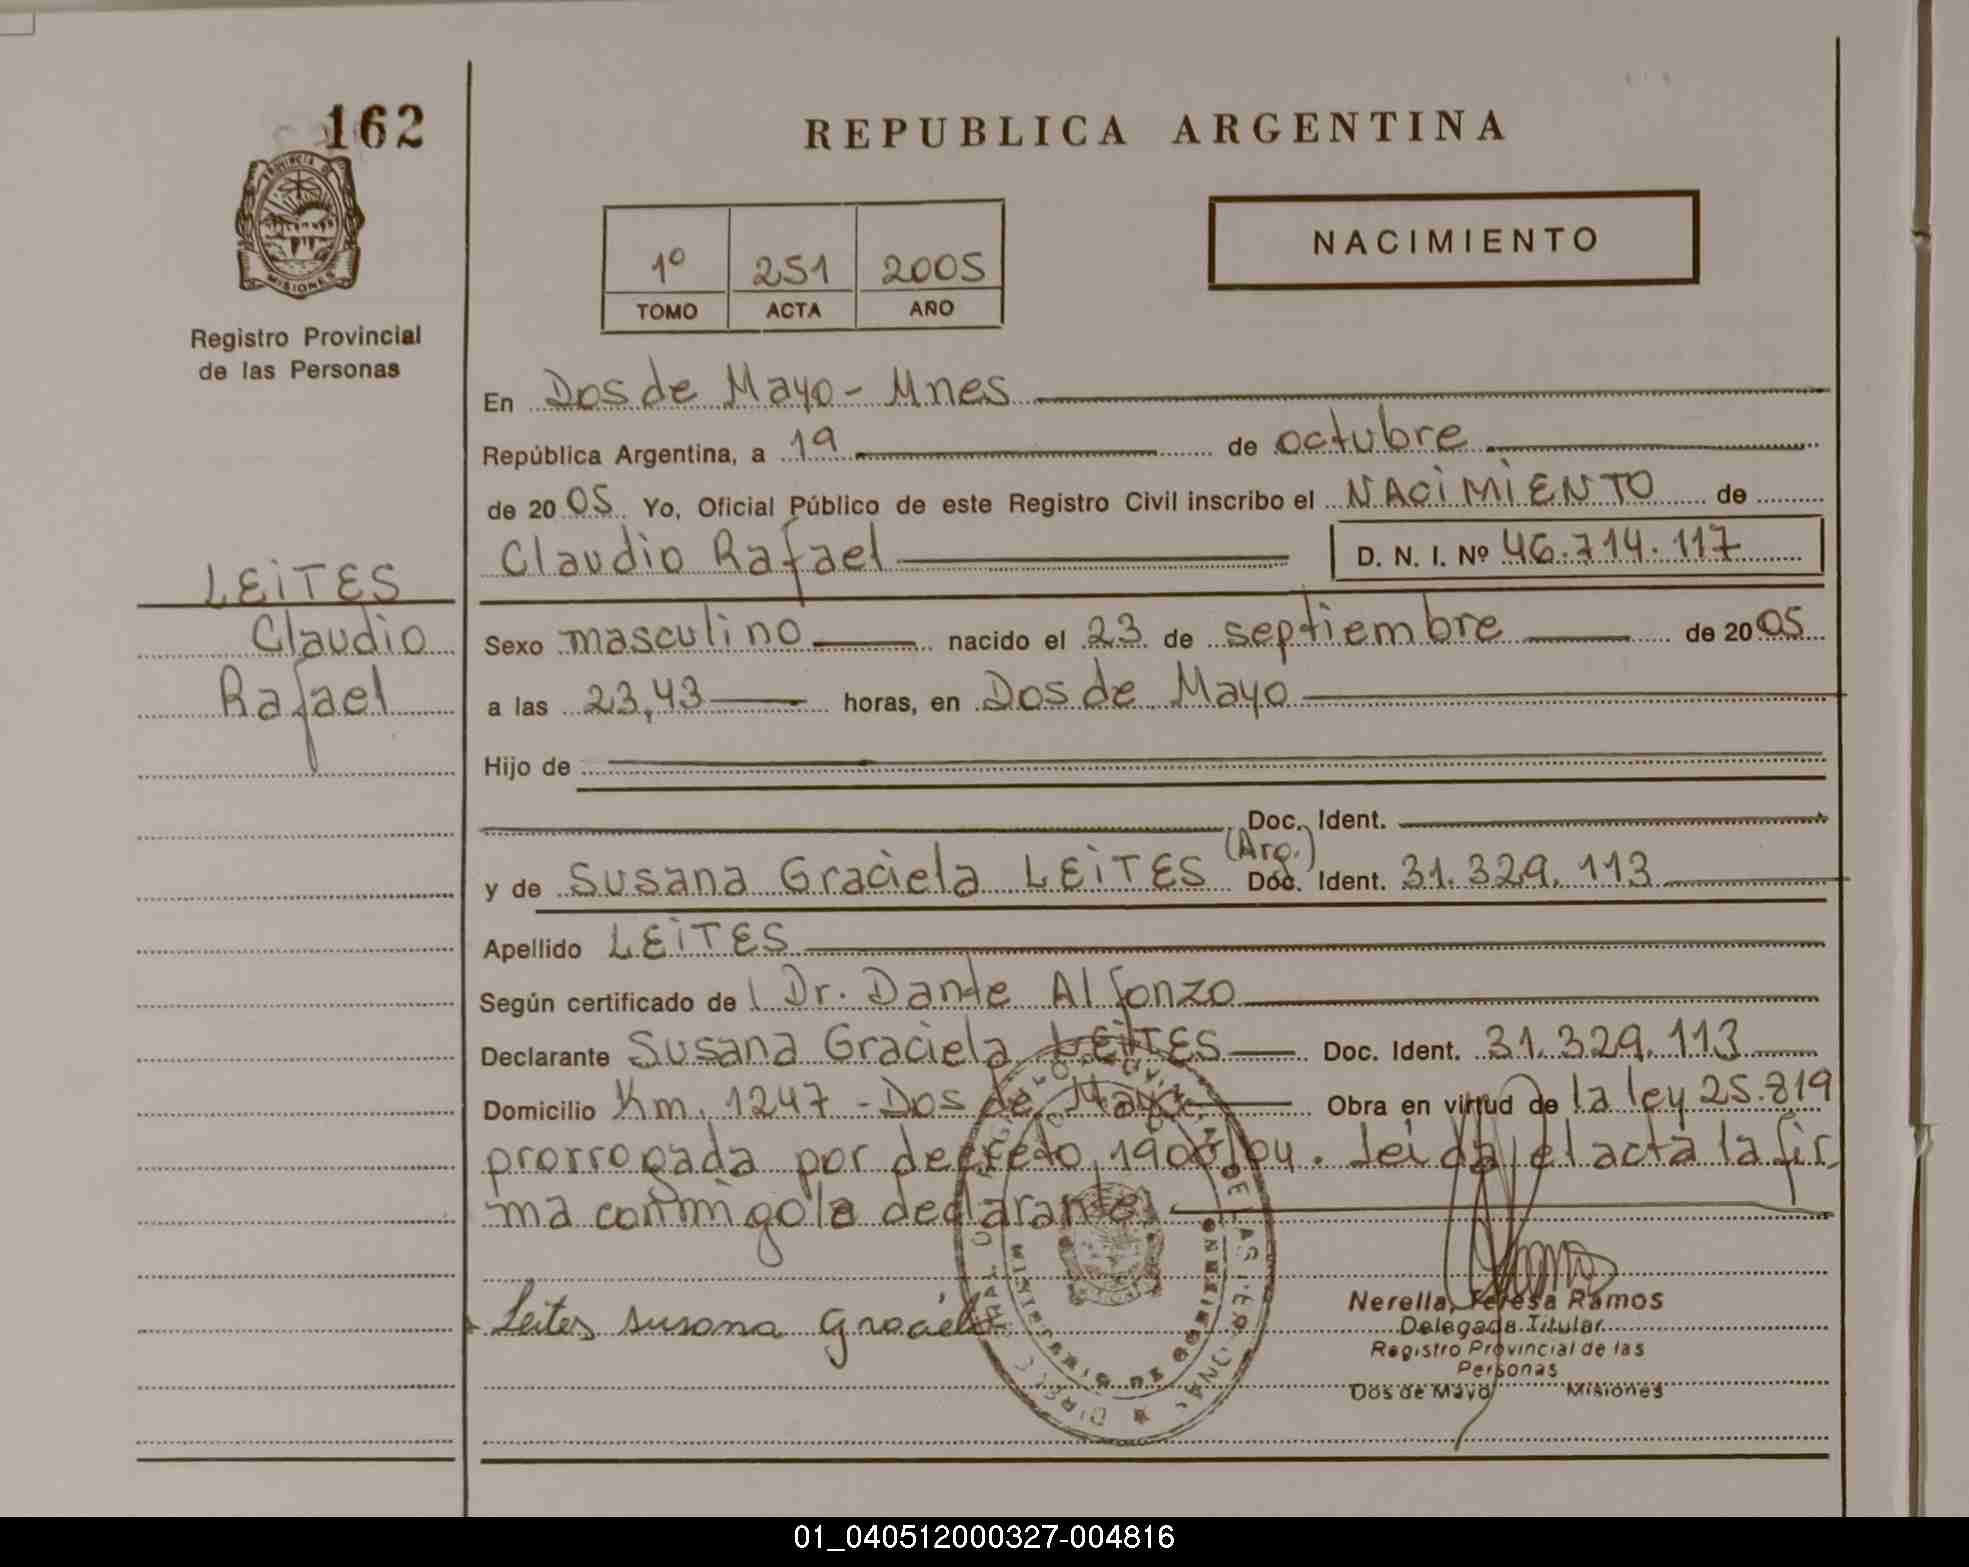 162
REPUBLICA ARGENTINA
PROVINCIA
MISIONES
Registro Provincial
de las Personas
1º 251 2005
TOMO ACTA AÑO
NACIMIENTO
En Dos de Mayo - Mnes
República Argentina, a 19 de octubre
de 2005 Yo, Oficial Público de este Registro Civil inscribo el NACIMIENTO de
Claudio Rafael D. N. I. Nº 46.714.117
LEITES
Claudio
Rafael
Sexo masculino nacido el 23 de septiembre de 2005
a las 23,43 horas, en Dos de Mayo
Hijo de
Doc. Ident.
(Arg.)
y de Susana Graciela LEITES Doc. Ident. 31.329.113
Apellido LEITES
Según certificado de l Dr. Dante Alfonzo
Declarante Susana Graciela LEITES Doc. Ident. 31.329.113
Domicilio Km. 1247 - Dos de Mayo Obra en virtud de la ley 25.819
prorrogada por decreto 190 /04. Leida el acta la fir
ma conmigo la declarante
Leites susana graciela
Nerella, Teresa Ramos
Delegada Titular
Registro Provincial de las
Personas
Dos de Mayo Misiones
01_040512000327-004816